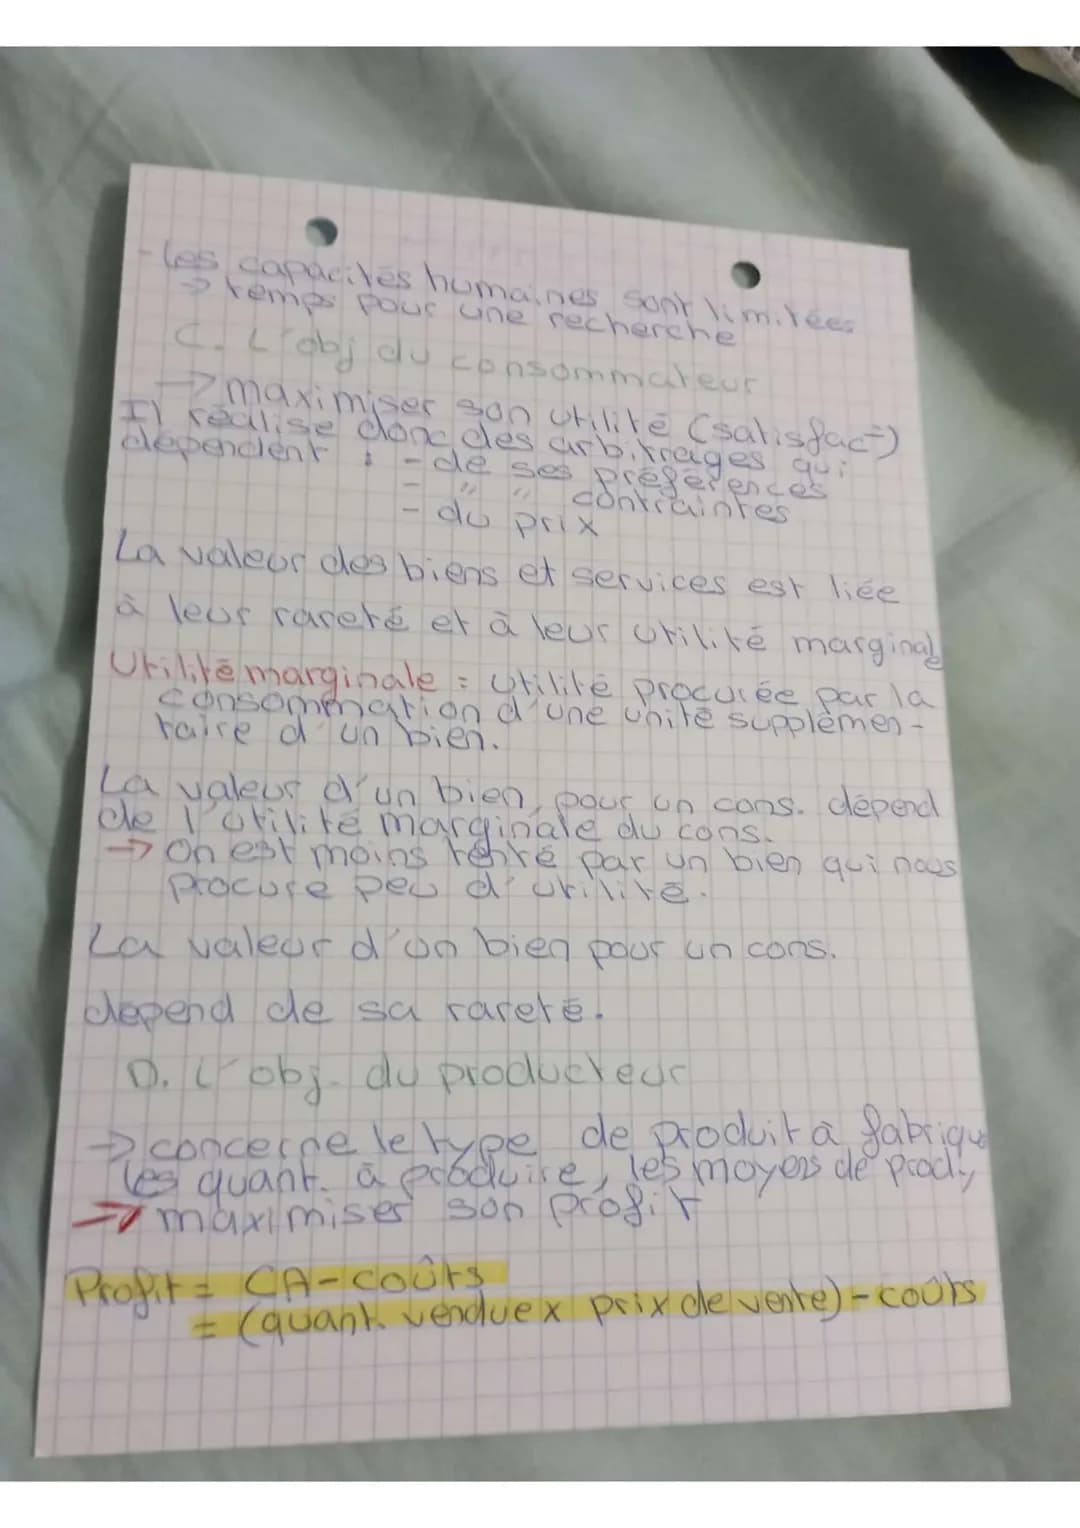 - Les capacités humaines sont limitées
→ temps pour une recherche
C. L'obj du consommateur
→ maximiser son utilité (satisfac°)
Il réalise donc des arbitrages qui
dépendent : - de ses préférences
- " " contraintes
- du prix
La valeur des biens et services est liée
à leur rareté et à leur utilité marginale
Utilité marginale = utilité procurée par la
consommation d'une unité supplémen-
taire d'un bien.
La valeur d'un bien, pour un cons. dépend
de l'utilité marginale du cons.
→ On est moins tenté par un bien qui nous
procure peu d'utilité.
La valeur d'un bien pour un cons.
dépend de sa rareté.
D. L'obj. du producteur
→ concerne le type de produit à fabrique
les quant. à produire, les moyens de prod.,
→ maximiser son profit
Profit = CA - coûts
= (quant. vendue x prix de vente) - coûts